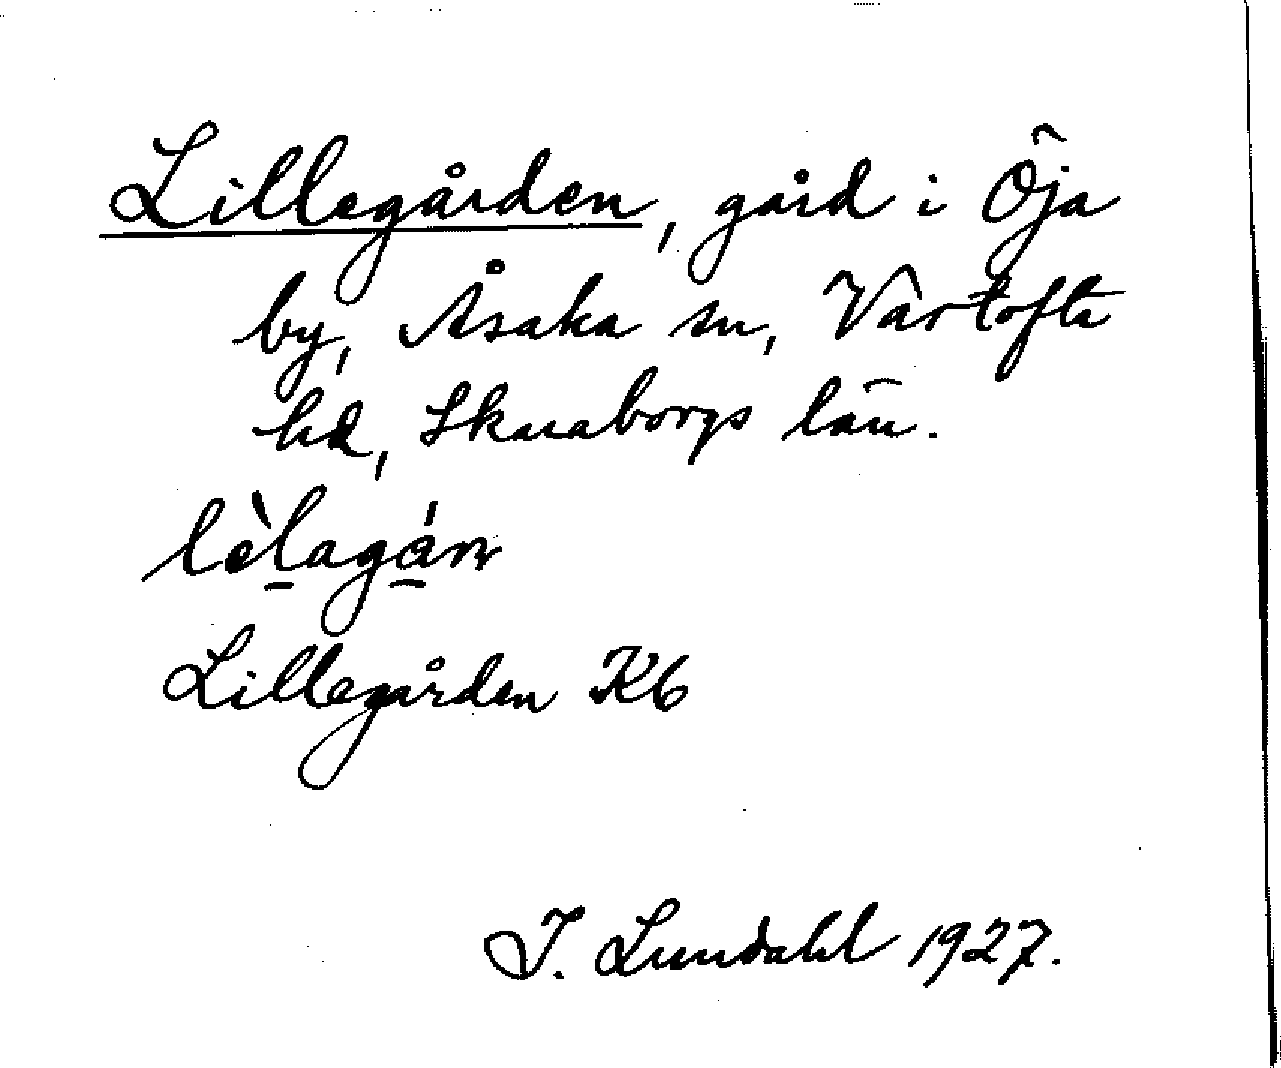 Lillegården, gård i Öja
by, Åsaka sn, Vartofta
hd, Skaraborgs län.
lèlagán
Lillegården Kb
I. Lundahl 1927.